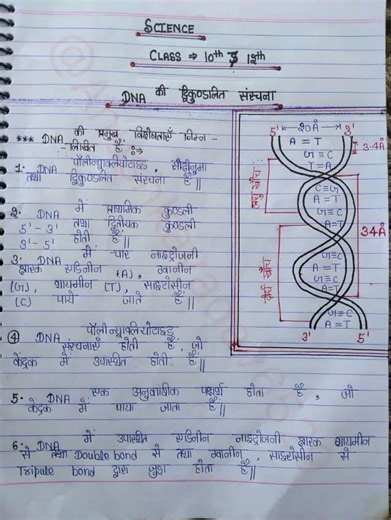 SCIENCE
CLASS ⇒ 10th & 12th
DNA की द्विकुण्डलित संरचना
*** DNA की प्रमुख विशेषताएँ निम्न -
- लिखित हैं :→
1. DNA पॉलीन्यूक्लियोटाइड, सीढ़ीनुमा
तथा द्विकुण्डलित संरचना है ||
2. DNA में प्राथमिक कुण्डली
5' - 3' तथा द्वितीयक कुण्डली
3' - 5' होती है ||
3. DNA में चार नाइट्रोजनी
क्षारक एडिनीन (A), ग्वानीन
(G), थायमीन (T), साइटोसीन
(C) पाये जाते हैं ||
4 DNA पॉलीन्यूक्लियोटाइड
संरचनाएँ होती हैं, जो
केंद्रक में उपस्थित होती हैं ||
5. DNA एक अनुवांशिक पदार्थ होता है, जो
केंद्रक में पाया जाता है ||
6. DNA में उपस्थित एडिनीन नाइट्रोजनी क्षारक थायमीन
से तथा Double bond से तथा ग्वानीन, साइटोसीन से
Tripule bond द्वारा जुड़ा होता है ||
5' 20Å 3'
A = T
G ≡ C
3.4Å
T = A
C ≡ G
A = T
G ≡ C
A = T
34Å
G ≡ C
A = T
G ≡ C
A = T
G ≡ C
A = T
3' 5'